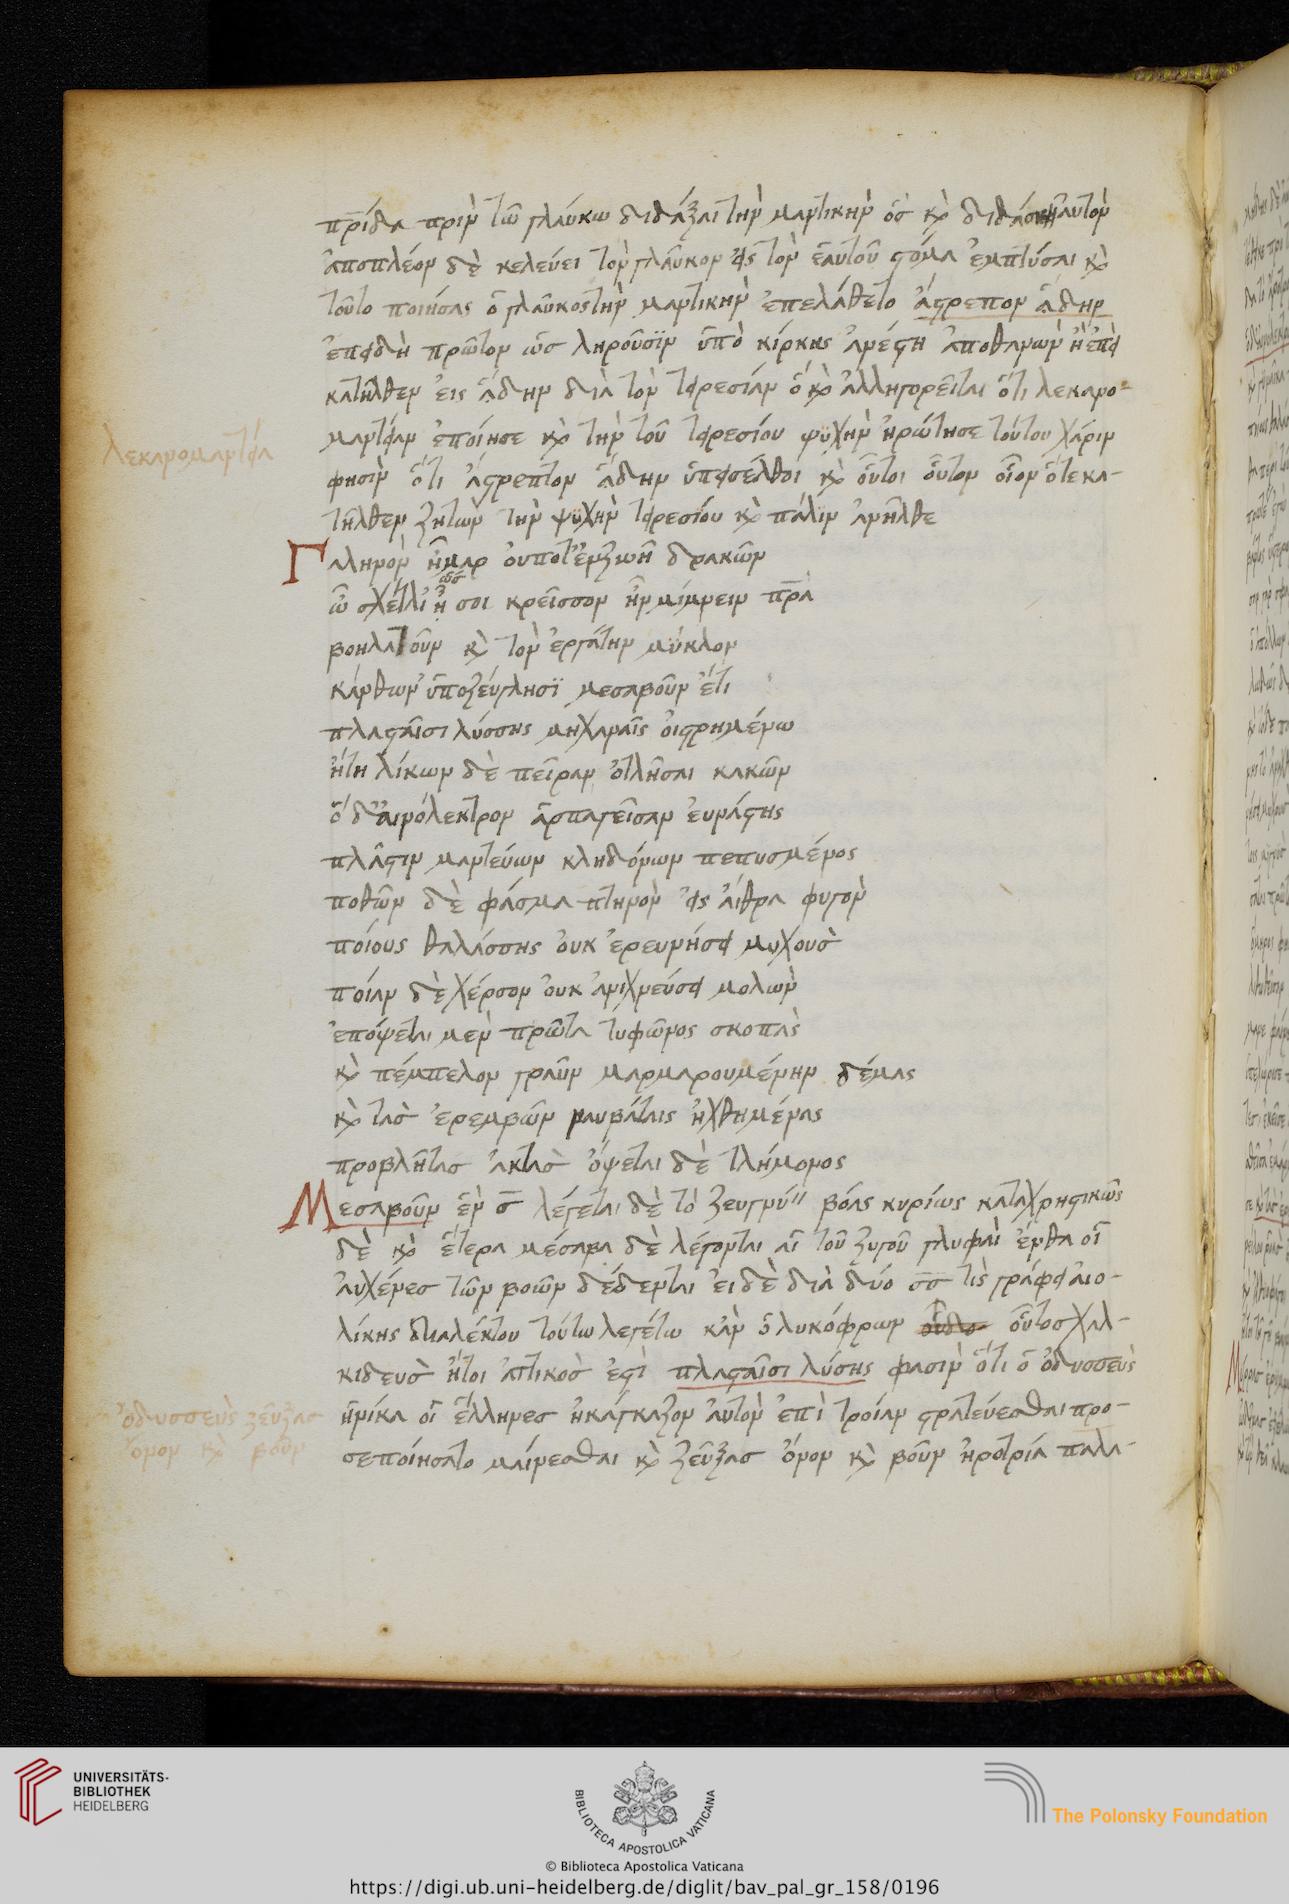 πρίδα πρὶν τῶ γλαύκω διδάξαι τὴν μαντικήν ὃς καὶ διδάσκει αυτὸν
ἀποπλέον δὲ κελεύει τὸν γλαῦκον εἰς τὸν ἑαυτοῦ στόμα ἐμπτύσαι καὶ
τοῦτο ποιήσας ὁ γλαῦκος τὴν μαντικὴν ἐπελάθετο ἄστρεπον ἅδην
ἐπειδὴ πρῶτον ὡς ληροῦσϊν ὑπὸ κίρκης ἀνέστη ἀποθανὼν ἢ ἐπεὶ
κατῆλθεν εἰς ἅδην διὰ τὸν τειρεσίαν ὃ καὶ ἀλληγορεῖται ὅτι λεκανο-
λεκανομαντεία
μαντείαν ἐποίησε καὶ τὴν τοῦ τειρεσίου ψυχὴν ἠρώτησε τούτου χάριν
φησὶν ὅτι ἄστρεπτον ἅδην ὑπεισέλθοι καὶ οὗτοι οὗτον οἷον ὅτε κα-
τῆλθεν ζητῶν τὴν ψυχὴν τειρεσίου καὶ πάλιν ἀνῆλθε
Γαληνὸν ἦμαρ οὔποτ' ἐν ζωῆ δρακῶν
ὡς
ὦ σχέτλι' ἦ σοι κρεῖσσον ἦν μίμνειν πρα
βοηλατοῦν καὶ τὸν ἐργάτην μύκλον
κάνθων' ὑποζεύγλησϊ μεσαβοῦν ἔτι
πλασταῖσι λύσσης μηχαναῖς οἰστρημένω
ἢ τηλίκων δὲ πεῖραν ὀτλῆσαι κακῶν
ὁ δ' αινόλεκτρον ἁρπαγεῖσαν εὐνάστης
πλᾶστιν μαντεύων κληδόνων πεπυσμένος
ποθῶν δὲ φάσμα πτηνὸν εἰς αἴθρα φυγὸν
ποίους θαλάσσης οὐκ ἐρευνήσει μυχοὺς
ποίαν δὲ χέρσον οὐκ ἀνιχνεύσει μολὼν
ἐπόψεται μὲν πρῶτα τυφῶνος σκοπὰς
καὶ πέμπελον γραῦν μαρμαρουμένην δέμας
καὶ τὰς ἐρεμβῶν ναυβάταις ἠχθημένας
προβλῆτας ἀκτὰς ὄψεται δὲ τλήμονος
Μεσαβοῦν ἓν σ λέγεται δὲ τὸ ζευγνύ" βόας κυρίως καταχρηστικῶς
δὲ καὶ ἕτερα μέσαβα δὲ λέγονται αἱ τοῦ ζυγοῦ γλυφαὶ ἔνθα οἱ
ἀυχένες τῶν βοῶν δέδενται εἰ δὲ διὰ δύο σσ τὶς γράφει αἰο-
λίκης διαλέκτου τούτω λεγέτω κἂν ὁ λυκόφρων οὗτος χαλ-
κιδεὺς ἤτοι ἀττικός ἐστὶ πλασταῖσι λύσης φασὶν ὅτι ὁ ὀδυσσεὺς
ὀδυσσεὺς ζεῦξας
ὄνον καὶ βοῦν
ἡνίκα οἱ ἕλληνες ἠνάγκαζον ἀυτὸν ἐπὶ τροίαν στρατεύεσθαι προ-
σεποίησατο μαίνεσθαι καὶ ζεῦξας ὄνον καὶ βοῦν ἠροτρία παλα-
UNIVERSITÄTS-
BIBLIOTHEK
HEIDELBERG
BIBLIOTECA APOSTOLICA VATICANA
The Polonsky Foundation
© Biblioteca Apostolica Vaticana
https://digi.ub.uni-heidelberg.de/diglit/bav_pal_gr_158/0196